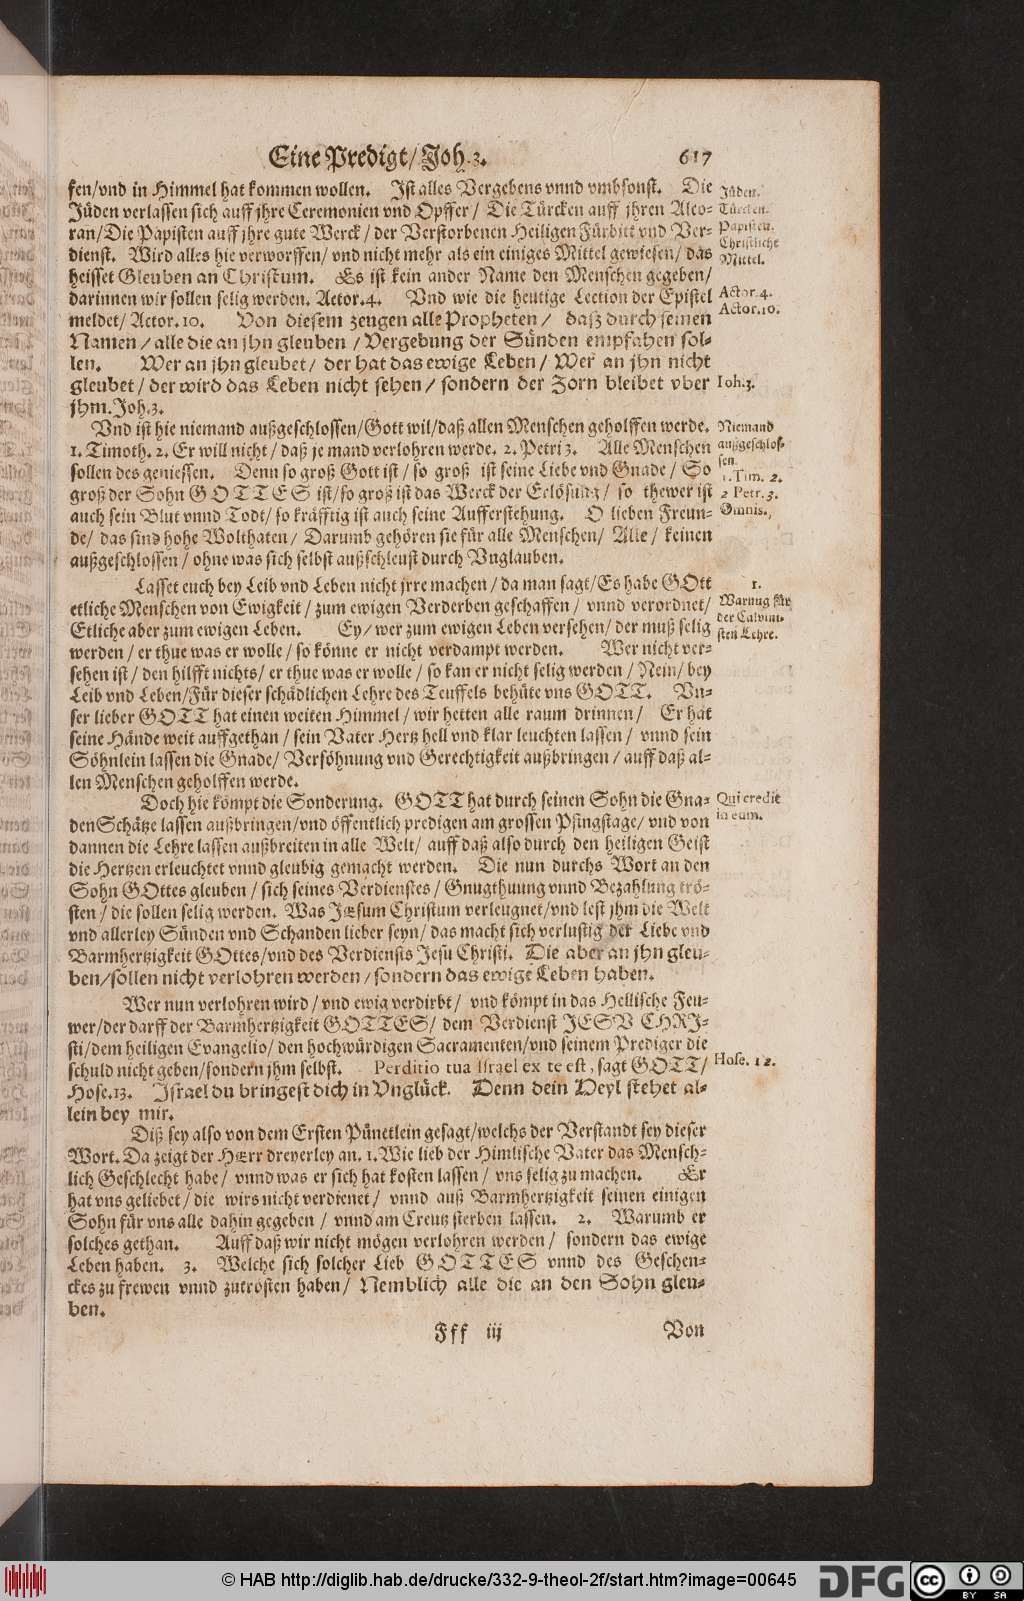 Eine Predigt/ Joh. 3. 617
fen/vnd in Himmel hat kommen wollen. Ist alles Vergebens vnnd vmbsonst. Die
Jüden verlassen sich auff jhre Ceremonien vnd Opffer/ Die Türcken auff jhren Alco-
ran/Die Papisten auff jhre gute Werck/ der Verstorbenen Heiligen Fürbitt vnd Ver-
dienst. Wird alles hie verworffen/ vnd nicht mehr als ein einiges Mittel gewiesen/ das
heisset Gleuben an Christum. Es ist kein ander Name den Menschen gegeben/
darinnen wir sollen selig werden. Actor.4. Vnd wie die heutige Lection der Epistel
meldet/ Actor.10. Von diesem zeugen alle Propheten/ daß durch seinen
Namen/ alle die an jhn gleuben/ Vergebung der Sünden empfahen sol-
len. Wer an jhn gleubet/ der hat das ewige Leben/ Wer an jhn nicht
gleubet/ der wird das Leben nicht sehen/ sondern der Zorn bleibet vber
jhm. Joh.3.
Jüden.
Türcken.
Papisten.
Christliche
Mittel.
Actor.4.
Actor.10.
Ioh.3.
Vnd ist hie niemand außgeschlossen/Gott wil/daß allen Menschen geholffen werde.
1. Timoth. 2. Er will nicht/ daß jemand verlohren werde. 2. Petri 3. Alle Menschen
sollen des geniessen. Denn so groß Gott ist/ so groß ist seine Liebe vnd Gnade/ So
groß der Sohn GOTTES ist/so groß ist das Werck der Erlösung/ so thewer ist
auch sein Blut vnnd Todt/ so kräfftig ist auch seine Aufferstehung. O lieben Freun-
de/ das sind hohe Wolthaten/ Darumb gehören sie für alle Menschen/ Alle/ keinen
außgeschlossen/ ohne was sich selbst außschleust durch Vnglauben.
Niemand
außgeschlos-
sen.
1. Tim. 2.
2 Petr. 3.
Omnis.
Lasset euch bey Leib vnd Leben nicht jrre machen/ da man sagt/Es habe GOtt
etliche Menschen von Ewigkeit/ zum ewigen Verderben geschaffen/ vnnd verordnet/
Etliche aber zum ewigen Leben. Ey/ wer zum ewigen Leben versehen/ der muß selig
werden/ er thue was er wolle/ so könne er nicht verdampt werden. Wer nicht ver-
sehen ist/ den hilfft nichts/ er thue was er wolle/ so kan er nicht selig werden/ Nein/ bey
Leib vnd Leben/Für dieser schädlichen Lehre des Teuffels behüte vns GOTT. Vn-
ser lieber GOTT hat einen weiten Himmel/ wir hetten alle raum drinnen/ Er hat
seine Hände weit auffgethan/ sein Vater Hertz hell vnd klar leuchten lassen/ vnnd sein
Söhnlein lassen die Gnade/ Versöhnung vnd Gerechtigkeit außbringen/ auff daß al-
len Menschen geholffen werde.
1.
Warnug für
der Calvini-
sten Lehre.
Doch hie kömpt die Sonderung. GOTT hat durch seinen Sohn die Gna-
den Schätze lassen außbringen/vnd öffentlich predigen am grossen Pfingstage/ vnd von
dannen die Lehre lassen außbreiten in alle Welt/ auff daß also durch den heiligen Geist
die Hertzen erleuchtet vnnd gleubig gemacht werden. Die nun durchs Wort an den
Sohn GOttes gleuben/ sich seines Verdienstes/ Gnugthuung vnnd Bezahlung trö-
sten/ die sollen selig werden. Was JEsum Christum verleugnet/vnd lest jhm die Welt
vnd allerley Sünden vnd Schanden lieber seyn/ das macht sich verlustig der Liebe vnd
Barmhertzigkeit GOttes/vnd des Verdiensts Jesu Christi. Die aber an jhn gleu-
ben/sollen nicht verlohren werden/sondern das ewige Leben haben.
Qui credit
in eum.
Wer nun verlohren wird/ vnd ewig verdirbt/ vnd kömpt in das Hellische Feu-
wer/der darff der Barmhertzigkeit GOTTES/ dem Verdienst JESV CHRI-
sti/dem heiligen Evangelio/ den hochwürdigen Sacramenten/vnd seinem Prediger die
schuld nicht geben/sondern jhm selbst. Perditio tua Israel ex te est, sagt GOTT/
Hose.13. Israel du bringest dich in Vnglück. Denn dein Heyl stehet al-
lein bey mir.
Hose. 12.
Diß sey also von dem Ersten Pünctlein gesagt/welchs der Verstandt sey dieser
Wort. Da zeigt der HErr dreyerley an. 1. Wie lieb der Himlische Vater das Mensch-
lich Geschlecht habe/ vnnd was er sich hat kosten lassen/ vns selig zu machen. Er
hat vns geliebet/ die wirs nicht verdienet/ vnnd auß Barmhertzigkeit seinen einigen
Sohn für vns alle dahin gegeben/ vnnd am Creutz sterben lassen. 2. Warumb er
solches gethan. Auff daß wir nicht mögen verlohren werden/ sondern das ewige
Leben haben. 3. Welche sich solcher Lieb GOTTES vnnd des Geschen-
ckes zu frewen vnnd zutrösten haben/ Nemblich alle die an den Sohn gleu-
ben.
Fff iij Von
© HAB http://diglib.hab.de/drucke/332-9-theol-2f/start.htm?image=00645
DFG
cc BY SA